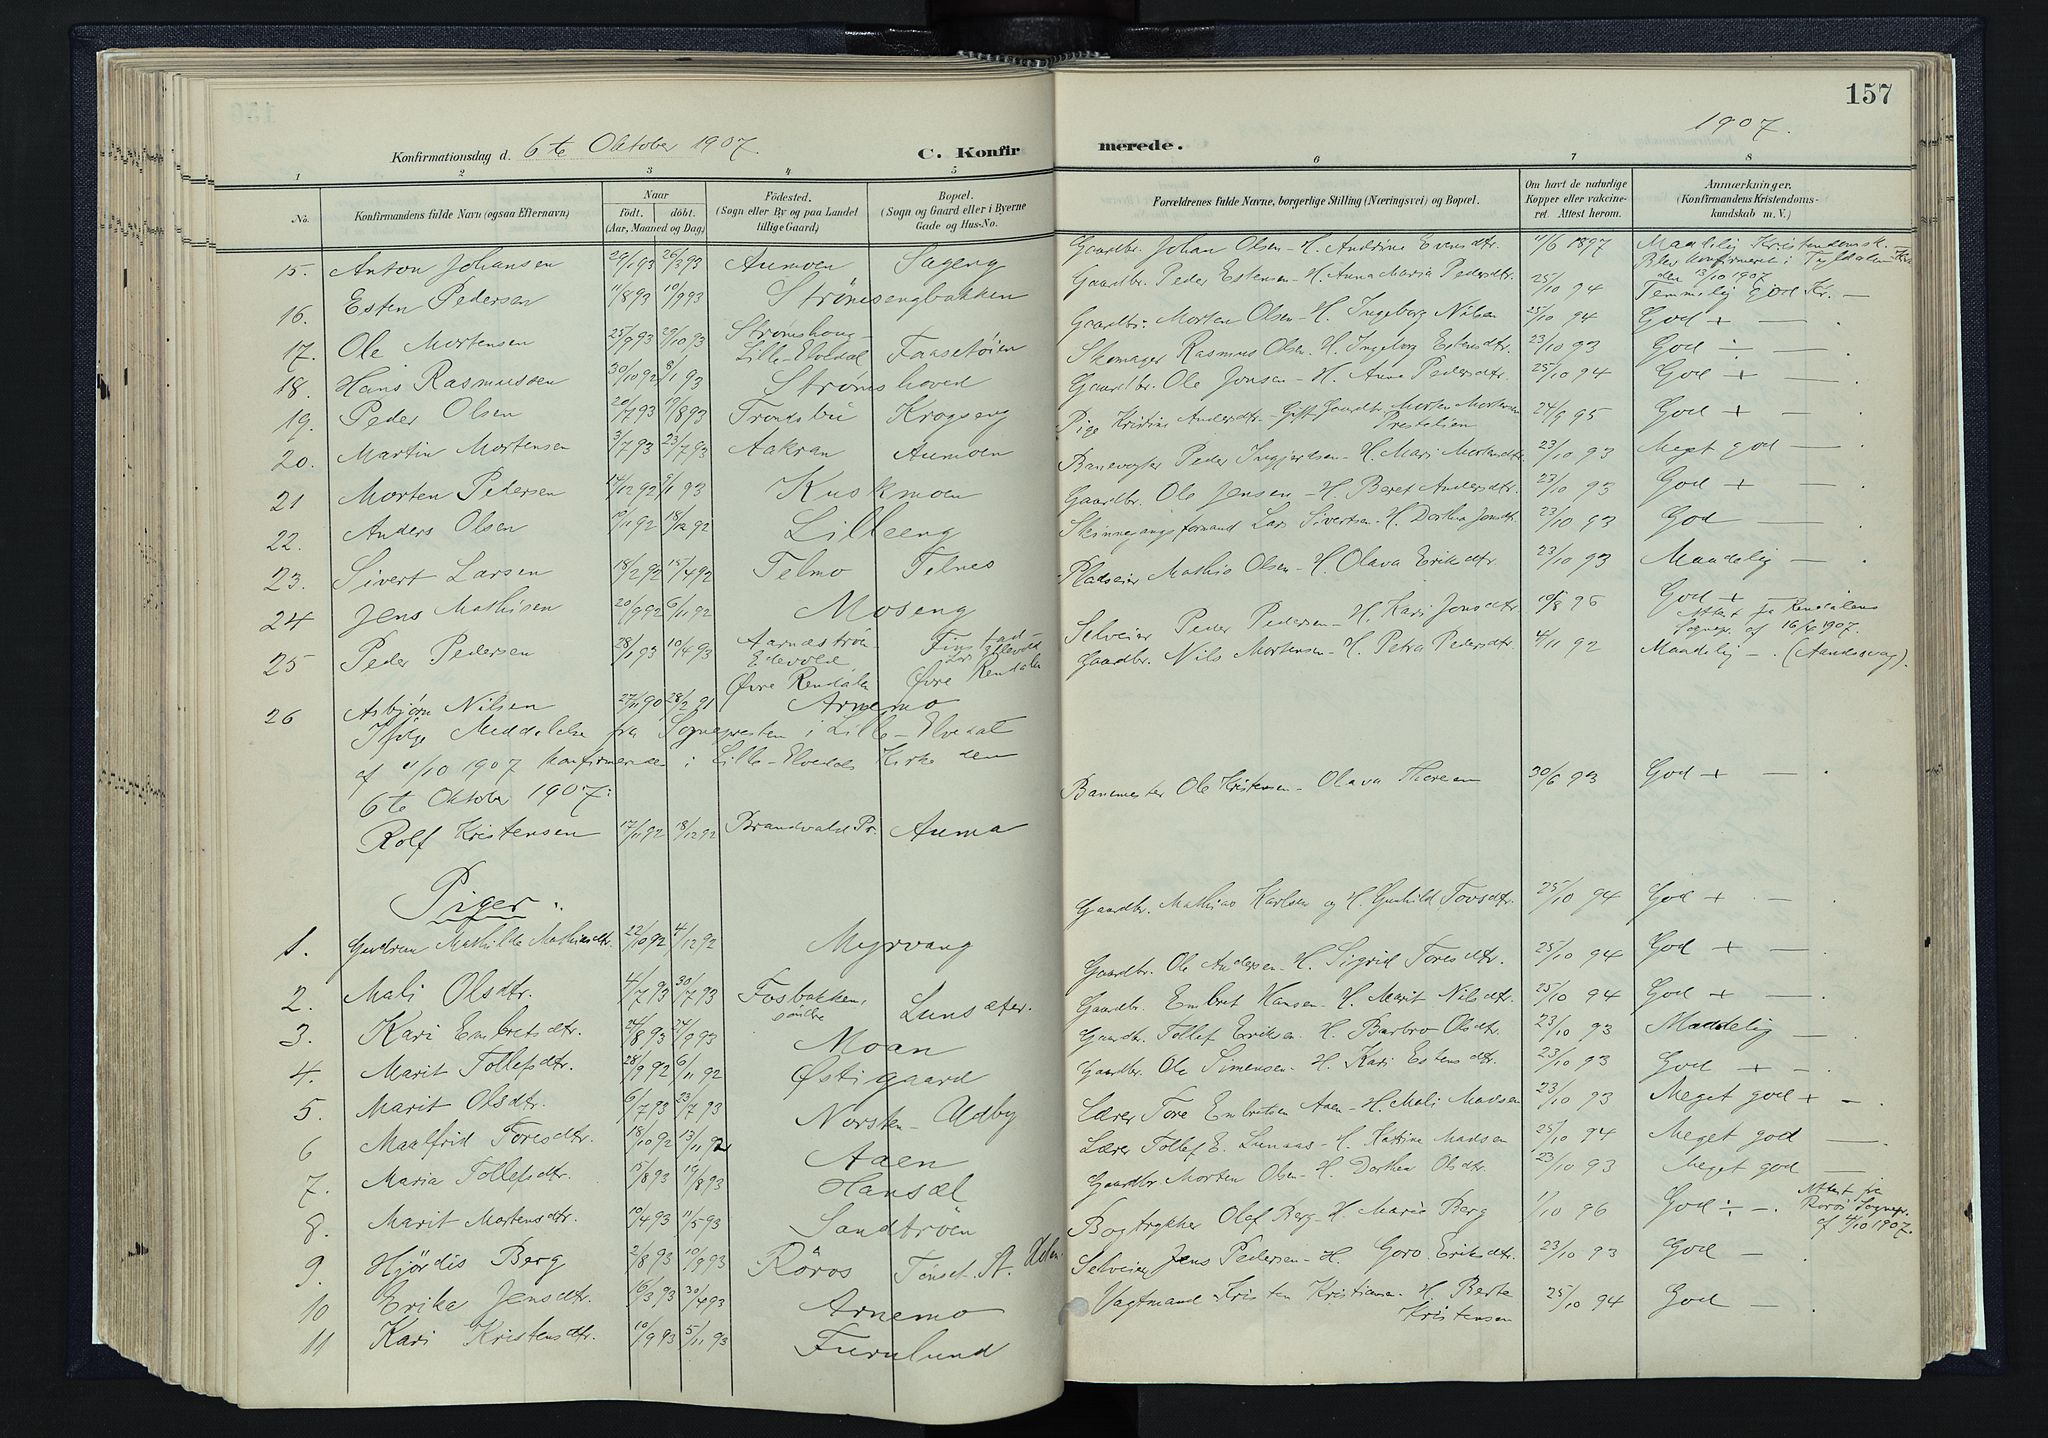 157
1907.
Konfirmationsdag d. 6te Oktober 1907.
C. Konfirmerede.
1 2 3 4 5 6 7 8
No.
Konfirmandens fulde Navn (ogsaa Efternavn)
Naar
födt. döbt.
(Aar, Maaned og Dag)
Födested.
(Sogn eller By og paa Landet
tillige Gaard)
Bopæl.
(Sogn og Gaard eller i Byerne
Gade og Hus-No.
Forældrenes fulde Navne, borgerlige Stilling (Næringsvei) og Bopæl.
Om havt de naturlige
Kopper eller vakcine-
ret. Attest herom.
Anmærkninger.
(Konfirmandens Kristendoms-
kundskab m. V.)
15. Anton Johansen 29/1 93 26/3 93 Aumoen Sageng Gaardbr. Johan Olsen - H. Andrine Evensdtr. 11/6 1897 Maadelig Kristendomsk.
Blev konfirmeret i Tyldalen
den 13/10 1907
16. Esten Pedersen 11/8 93 10/9 93 Strömsengbakken Gaardbr. Peder Estensen - H. Anna Maria Pedersdtr. 25/10 94 Temmelig god Kr. —
17. Ole Mortensen 25/9 93 29/10 93 Strömshoug Lille-Elvedal Faasetöien Gaardbr. Morten Olsen - H. Ingeborg Nilsen 25/10 94 God + —
18. Hans Rasmussen 30/10 92 8/1 93 Strömshoved Skomager Rasmus Olsen - H. Ingeborg Estensdtr. 23/10 93 God ÷ —
19. Peder Olsen 20/7 93 19/8 93 Trondsbu Krogseng Gaardbr. Ole Jonsen - H. Anne Pedersdtr. 25/10 94 God + —
20. Martin Mortensen 3/7 93 23/7 93 Aakran Aumoen Pige Kristine Andersdtr - Gift Gaardbr. Morten Mortensen
Prestalien 24/9 95 God + —
21 Morten Pedersen 14/12 92 9/1 93 Kuskmoen Banevogter Peder Ingjerdsen - H. Mari Mortensdtr 23/10 93 Meget god —
22. Anders Olsen 19/11 92 18/12 92 Lilleeng Gaardbr. Ole Jensen - H. Beret Andersdtr. 23/10 93 God + —
23. Sivert Larsen 18/2 92 15/4 92 Telmo Telnes Skinnegangsformand Lars Sivertsen - H. Dorthea Jonsdtr. 23/10 93 God —
24 Jens Mathisen 20/9 92 6/11 92 Moseng Pladseier Mathis Olsen - H. Olava Eriksdtr. 23/10 93 Maadelig —
25 Peder Pedersen 28/1 93 10/4 93 Aarnaströn
Edevold,
Øvre Rendalen
Øvre Rendalen Selveier Peder Pedersen - H. Kari Jonsdtr. 10/8 96 God +
Attest fra Rendalens
Sognepr. af 16/4 1907.
26 Asbjörn Nilsen 27/11 90 28/2 91 Arnemo Gaardbr. Nils Mortensen - H. Petra Pedersdtr. 4/11 92 Maadelig —. (Aandssvag).
Ifølge Meddelelse fra Sognepresten i Lille-Elvedal
af 11/10 1907 konfirmerede i Lille-Elvedals Kirke den
6te Oktober 1907:
Rolf Kristensen 17/11 92 18/12 92 Brandvald Pr. Auma Banemester Ole Kristensen - Olava Thoresen 30/6 93 God + —
Piger.
1. Gudrun Mathilde Mathiasdtr. 22/10 92 4/12 92 Myrvang Gaardbr. Mathias Karlsen og H. Gunhild Tovsdtr. 25/10 94 God + —
2. Mali Olsdtr. 4/7 93 30/7 93 Fosbakken,
søndre Lunsæter. Gaardbr. Ole Andersen - H. Sigrid Toresdtr. 25/10 94 God + —
3. Kari Embretsdtr. 24/8 93 24/9 93 Moan Gaardbr. Embret Hansen - H. Marit Nilsdtr. 25/10 94 God + —
4. Marit Tollefsdtr. 28/9 92 6/11 92 Østigaard Gaardbr. Tollef Eriksen - H. Barbro Olsdtr. 23/10 93 Maadelig —
5. Marit Olsdtr. 6/7 93 23/7 93 Norsten-Udby Gaardbr. Ole Simensen - H. Kari Estensdtr. 23/10 93 God + —
6 Maalfrid Toresdtr. 18/10 92 13/11 92 Aaen Lærer Tore Embretsen Aaen - H. Mali Madsen 23/10 93 Meget god + —
7. Maria Tollefsdtr. 15/8 93 19/8 93 Hansæl Lærer Tollef E. Lunaas - H. Katrine Madsen 25/10 94 Meget god —
8. Marit Mortensdtr. 10/4 93 11/5 93 Sandtröen Gaardbr Morten Olsen - H. Dorthea Olsdtr. 23/10 93 Meget god —
9. Hjördis Berg 2/8 93 10/9 93 Röros Tönset St. Bogtrykker Olaf Berg - H. Maria Berg 1/10 96 God ÷ —. Attest fra
Röros Sognepr.
af 4/10 1907.
10 Erika Jensdtr. 16/3 93 30/4 93 Arnemo Selveier Jens Pedersen - H. Goro Eriksdtr. 23/10 93 God —
11 Kari Kristensdtr. 10/9 93 5/11 93 Furulund Vagtmand Kristen Kristiansen - H. Berte
Kristensen 25/10 94 God —